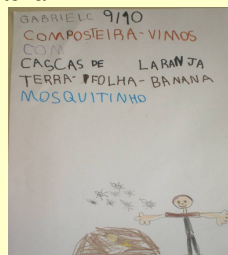 GABRIELC 9/10
COMPOSTEIRA-VIMOS
COM
CASCAS DE LARANJA
TERRA-FOLHA-BANANA
MOSQUITINHO